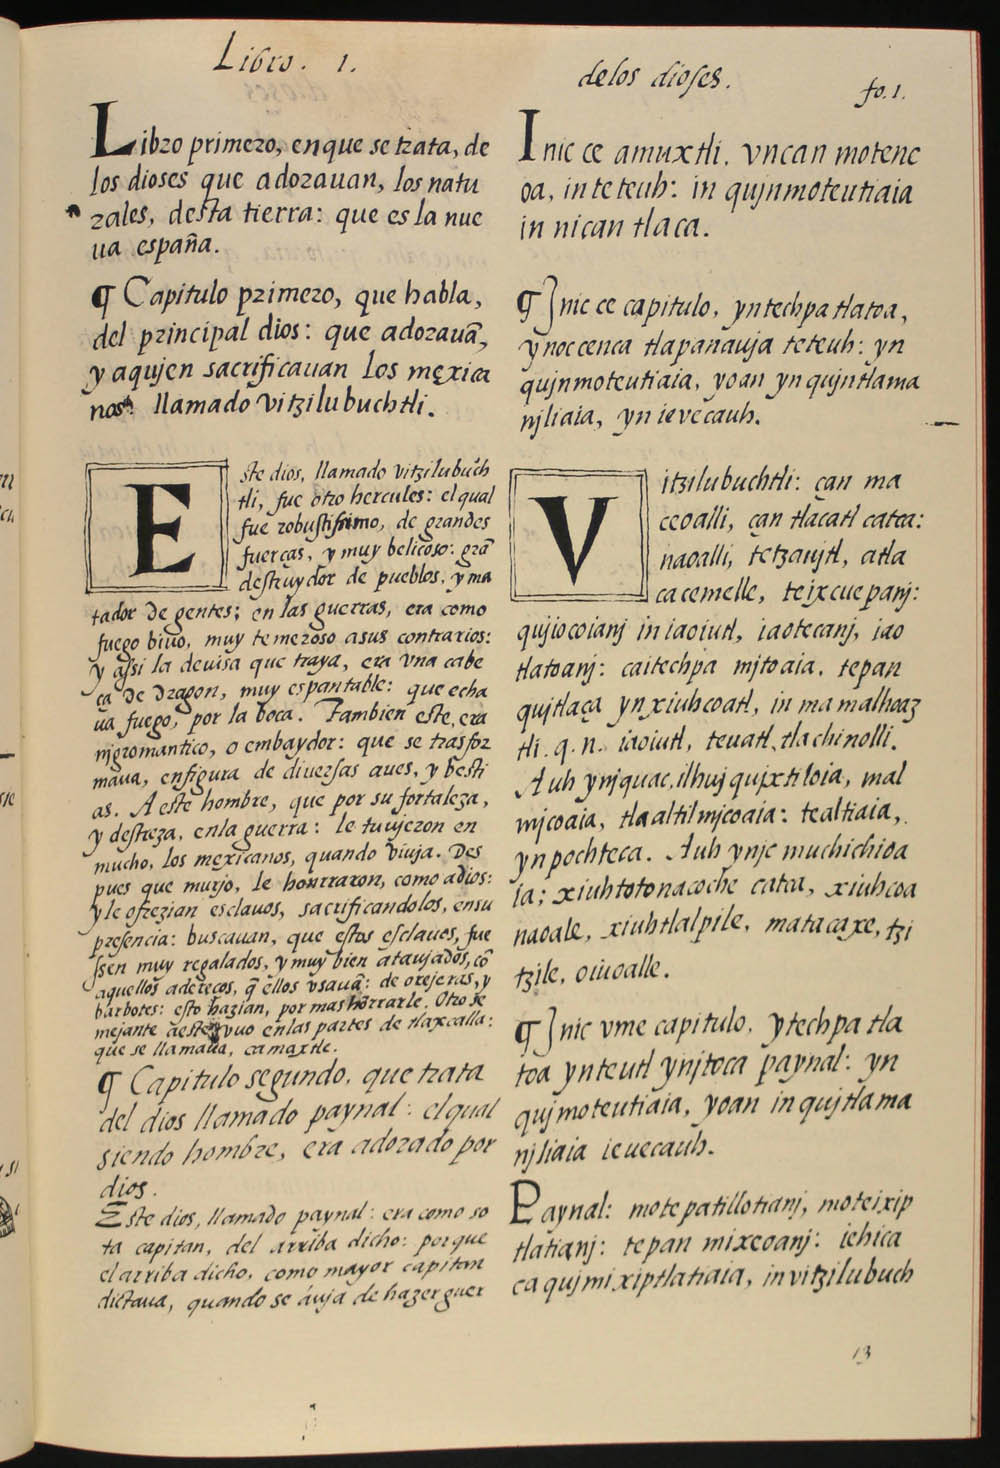 Libro. 1.
Libro primero, enque se trata, de
los dioses que adorauan, los natu
rales, desta tierra: que es la nue
ua españa.
¶ Capitulo primero, que habla,
del principal dios: que adorauã,
y aqujen sacrificauan los mexica
nos: llamado vitzilubuchtli.
Este dios, llamado vitzilubuch
tli, fue otro hercules: el qual
fue robustissimo, de grandes
fuerças, y muy belicoso: grã
destruydor de pueblos, y ma
tador de gentes; en las guerras, era como
fuego biuo, muy temeroso a sus contrarios:
y assi la deuisa que traya, era vna cabe
ça de dragon, muy espantable: que echa
ua fuego, por la boca. Tambien este, era
njgromantico, o embaydor: que se trasfor
maua, enfigura de diuersas aues, y besti
as. A este hombre, que por su fortaleza,
y destreza, enla guerra: le tuujeron en
mucho, los mexicanos, quando viuja. Des
pues que murjo, le honrraron, como adios:
y le ofrezian esclauos, sacrificandolos, ensu
presencia: buscauan, que estos esclauos, fue
ssen muy regalados, y muy bien ataujados, cõ
aquellos adereços, q̃ ellos vsauã: de orejeras, y
barbotes: esto hazian, por mas honrrarle. Otro se
mejante aeste, vuo enlas partes de tlaxcalla:
que se llamaua, camaxtle.
¶ Capitulo segundo. que trata
del dios llamado paynal: el qual
siendo hombre, era adorado por
dios.
Este dios, llamado paynal: era como so
ta capitan, del arriba dicho: porque
el arriba dicho, como mayor capitan
dictaua, quando se auja de hazer guer
delos dioses.
fo. 1.
Inic ce amuxtli. vncan motene
oa, in teteuh: in qujnmoteutiaia
in nican tlaca.
¶ Jnic ce capitulo, yntechpa tlatoa,
ynoccenca tlapanauja teteuh: yn
qujnmoteutiaia, yoan yn qujntlama
njliaia, yn ievecauh.
Vitzilubuchtli: çan ma
ceoalli, çan tlacatl catca:
naoalli, tetzaujtl, atla
cacemelle, teixcuepanj:
qujiocoianj in iaoiutl, iaotecanj, iao
tlatoanj: caitechpa mjtoaia, tepan
qujtlaça yn xiuhcoatl, in mamalhoaz
tli. q. n. iaoiutl, teuatl, tlachinolli.
Auh ynjquac, ilhuj qujxtiloia, mal
mjcoaia, tlaaltilmjcoaia: tealtiaia,
yn pochteca. Auh ynjc muchichioa
ia; xiuhtotonacoche catca, xiuhcoa
naoale, xiuhtlalpile, matacaxe, tzi
tzile, oiuoalle.
¶ Jnic vme capitulo, ytechpa tla
toa ynteutl ynjtoca paynal: yn
qujmoteutiaia, yoan in qujtlama
njliaia ieuecauh.
Paynal: motepatillotianj, moteixip
tlatianj: tepan mixeoanj: iehica
ca qujmixiptlatiaia, in vitzilubuch
13